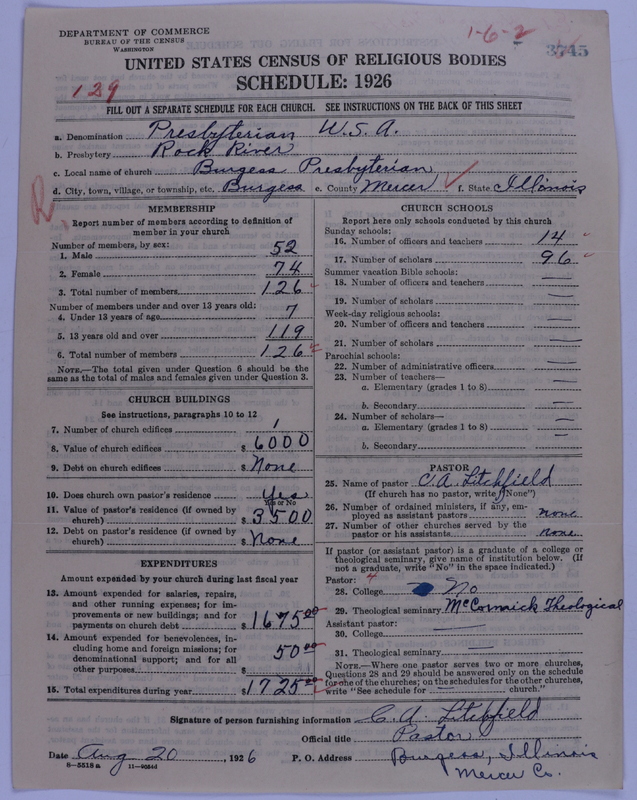 DEPARTMENT OF COMMERCE
BUREAU OF THE CENSUS
WASHINGTON
1-6-2
3745
UNITED STATES CENSUS OF RELIGIOUS BODIES
SCHEDULE: 1926
129
FILL OUT A SEPARATE SCHEDULE FOR EACH CHURCH. SEE INSTRUCTIONS ON THE BACK OF THIS SHEET
a. Denomination Presbyterian U.S.A.
b. Presbytery Rock River
c. Local name of church Burgess Presbyterian
d. City, town, village, or township, etc. Burgess e. County Mercer f. State Illinois
R
MEMBERSHIP
Report number of members according to definition of member in your church
Number of members, by sex:
1. Male 52
2. Female 74
3. Total number of members 126
Number of members under and over 13 years old:
4. Under 13 years of age 7
5. 13 years old and over 119
6. Total number of members 126
NOTE.—The total given under Question 6 should be
same as the total of males and females given under Question 3.
CHURCH BUILDINGS
See instructions, paragraphs 10 to 12
7. Number of church edifices 1
8. Value of church edifices $ 6000
9. Debt on church edifices $ None
10. Does church own pastor's residence Yes
Yes or No
11. Value of pastor's residence (if owned by
church) $ 3500
12. Debt on pastor's residence (if owned by
church) $ None
EXPENDITURES
Amount expended by your church during last fiscal year
13. Amount expended for salaries, repairs,
and other running expenses; for im-
provements or new buildings; and for
payments on church debt $ 1675.00
14. Amount expended for benevolences, in-
cluding home and foreign missions; for
denominational support; and for all
other purposes $ 50.00
15. Total expenditures during year $ 1725.00
CHURCH SCHOOLS
Report here only schools conducted by this church
Sunday schools:
16. Number of officers and teachers 14
17. Number of scholars 96
Summer vacation Bible schools:
18. Number of officers and teachers —
19. Number of scholars —
Week-day religious schools:
20. Number of officers and teachers —
21. Number of scholars —
Parochial schools:
22. Number of administrative officers —
23. Number of teachers—
a. Elementary (grades 1 to 8) —
b. Secondary —
24. Number of scholars—
a. Elementary (grades 1 to 8) —
b. Secondary —
PASTOR
25. Name of pastor C. A. Litchfield
(If church has no pastor, write "None")
26. Number of ordained ministers, if any, em-
ployed as assistant pastors none
27. Number of other churches served by the
pastor or his assistants none
If pastor (or assistant pastor) is a graduate of a college or
theological seminary, give name of institution below. (If
not a graduate, write "No" in the space indicated.)
Pastor: 4
28. College No
29. Theological seminary McCormick Theological
Assistant pastor:
30. College —
31. Theological seminary —
NOTE.—Where one pastor serves two or more churches,
Questions 28 and 29 should be answered only on the schedule
for one of the churches; on the schedules for the other churches,
write "See schedule for — church."
Signature of person furnishing information C. A. Litchfield
Official title Pastor
Date Aug 20, 1926 P. O. Address Burgess, Illinois
Mercer Co.
8—5518a